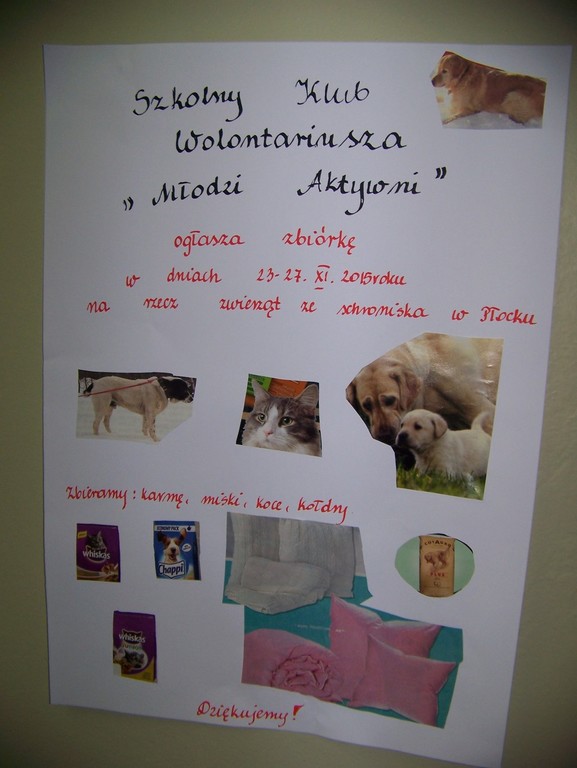 Szkolny Klub
Wolontariusza
„Młodzi Aktywni”
ogłasza zbiórkę
w dniach 23-27. XI. 2015 roku
na rzecz zwierząt ze schroniska w Płocku
Zbieramy: karmę, miski, koce, kołdry
whiskas
Chappi
whiskas
Dziękujemy!